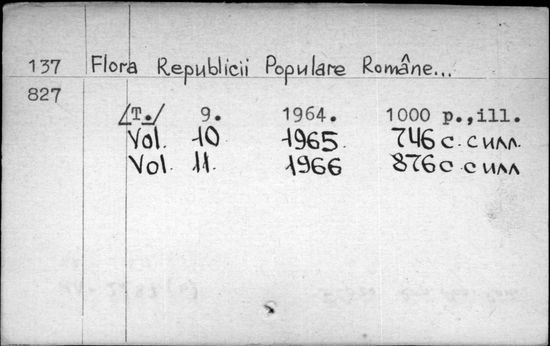 137 Flora Republicii Populare Române...
827
/T./ 9. 1964. 1000 p.,ill.
Vol. 10 1965 746 с. с илл.
Vol. 11. 1966 876 с. с илл